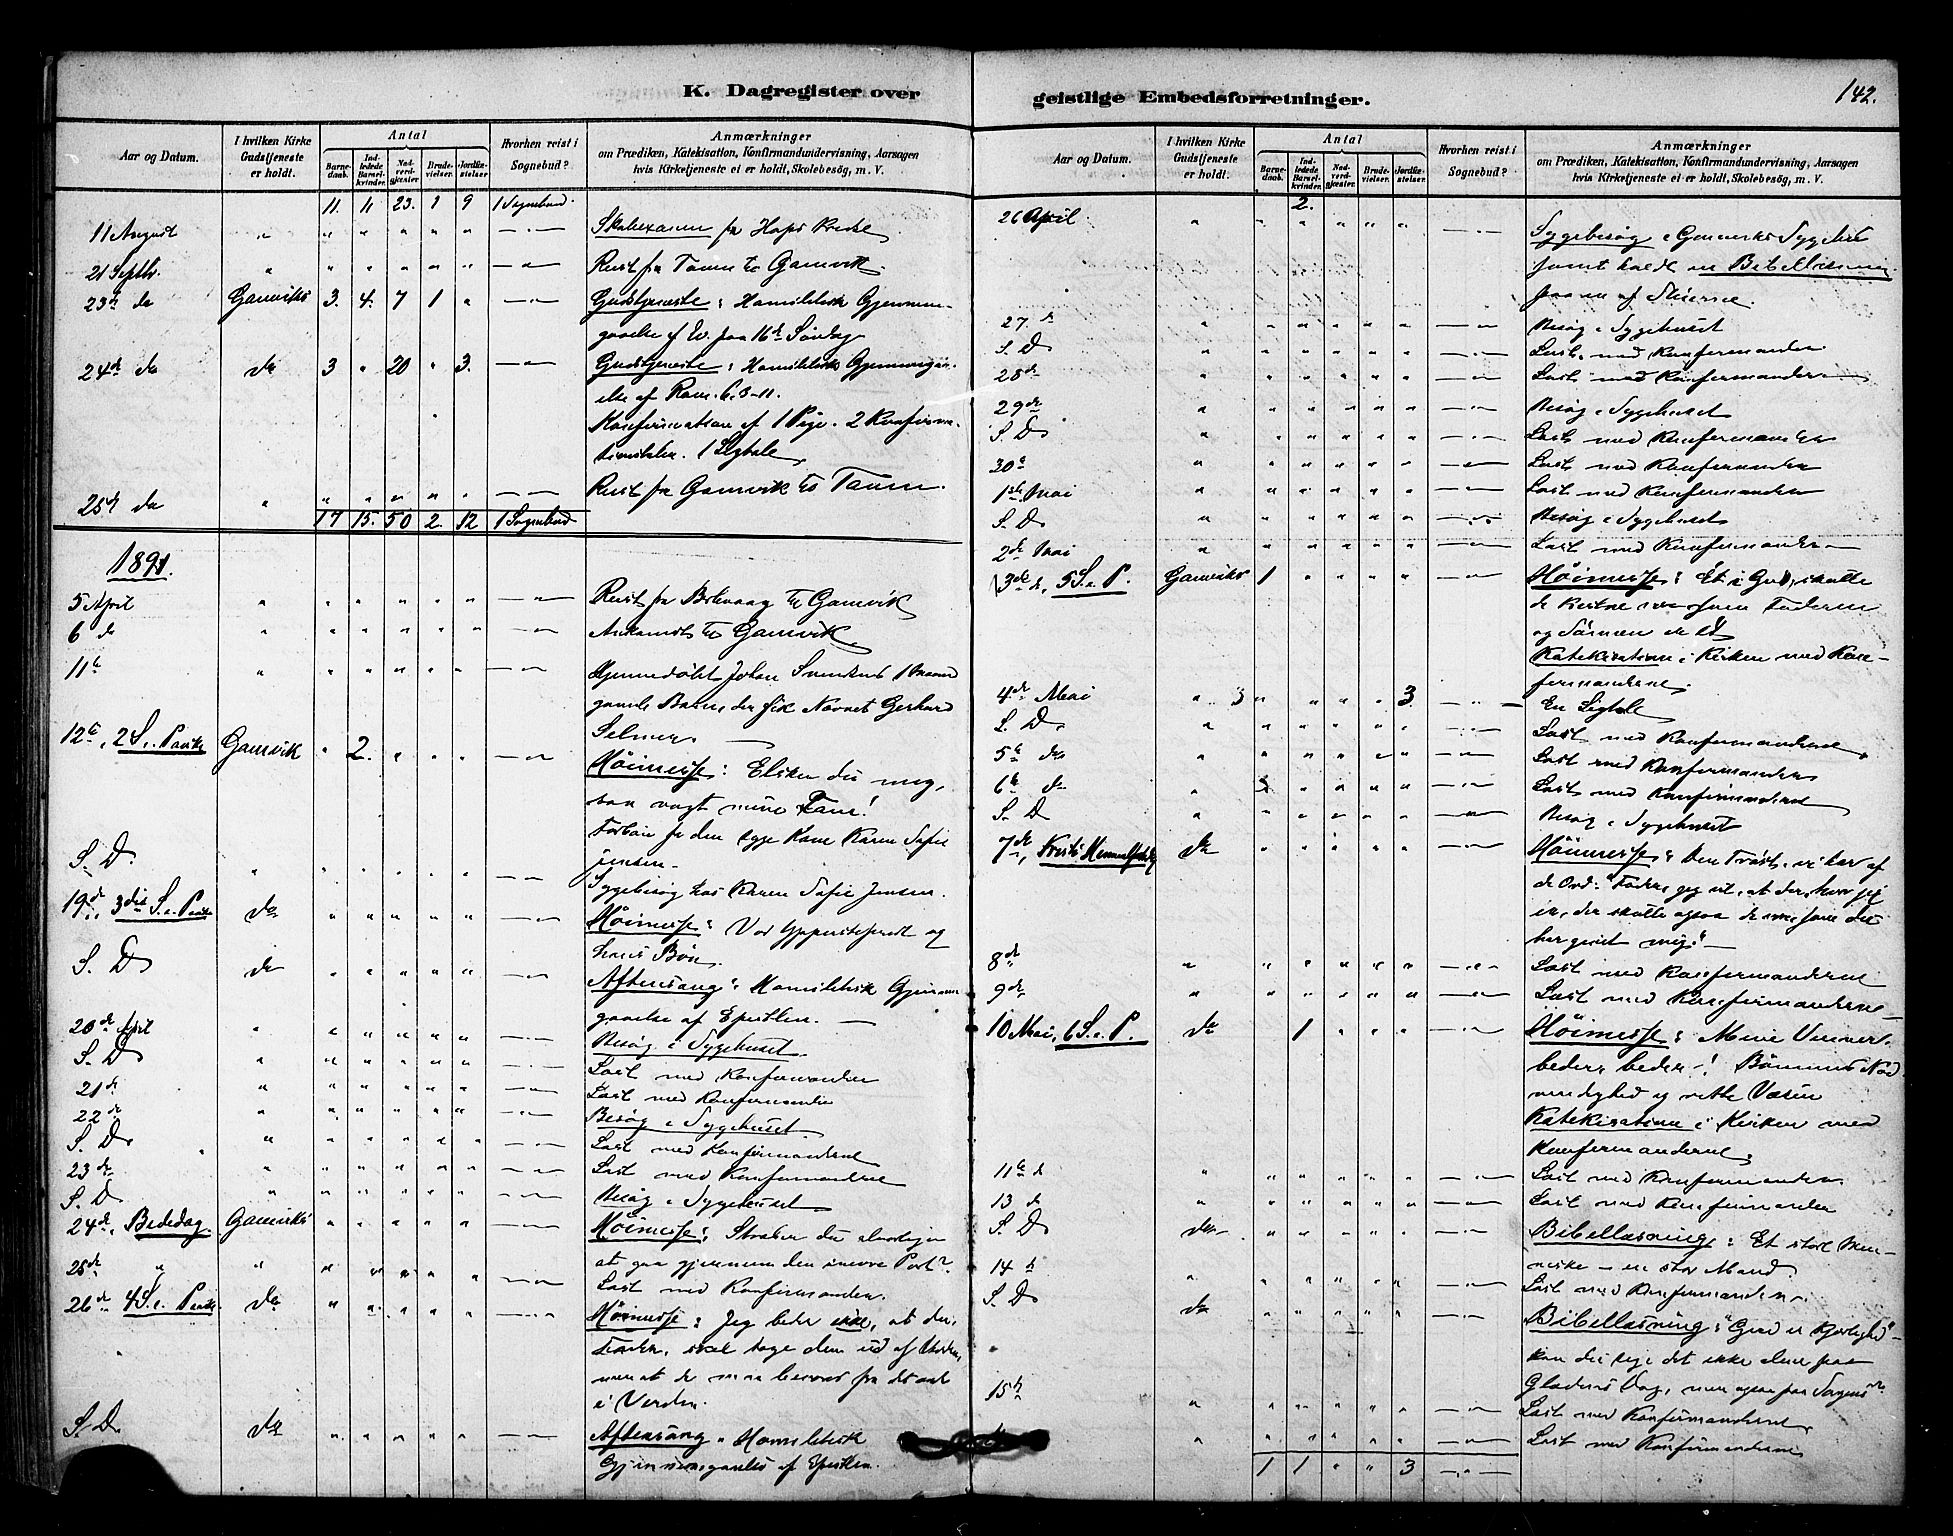 K. Dagregister over
Aar og Datum.
I hvilken Kirke Gudstjeneste er holdt.
Antal
Barnedaab.
Indledede Barselkvinder.
Nadverdgjæster.
Brudevielser.
Jordfæstelser.
Hvorhen reist i Sognebud?
Anmærkninger
om Prædiken, Katekisation, Konfirmandundervisning, Aarsagen
hvis Kirketjeneste ei er holdt, Skolebesøg, m. V.
11. 11 23. 1 9 1 Sognebud.
11 August " " " " " " Skolexamen fra Hops Kreds
21 Septb. " " " " " " Reist fra Tanen til Gamvik.
23de do Gamviks 3. 4. 7 1 " Gudstjeneste: Homiletisk Gjennem-
gaaelse af Ev. paa 16de Søndag
24de do do 3 " 20 " 3. Gudstjeneste: Homiletisk Gjennemgaa-
else af Rom. 6. 3-11.
Konfirmation af 1 Pige. 2 Konfirma-
tionstaler. 1 Ligtale
25de do " " " " " " Reist fra Gamvik til Tanen.
17 15. 50 2. 12 1 Sognebud
1891.
5 April " " " " " " Reist fra Berlevaag til Gamvik
6 do " " " " " " Ankomst til Gamvik
11te " " " " " " Hjemmedøbt Johan Svendsens 1 Maaned
gamle Barn der fik Navnet Gerhard
Selmer.
12te, 2 S. e. Paaske Gamvik " 2. " " " Høimesse: Elsker du mig,
saa vogt mine Faar!
Forbøn for den syge Kone Karen Sofie
Jensen.
S. D. " " " " " " Sygebesøg hos Karen Sofie Jensen.
19de, 3die S. e. Paaske do " " " " " Høimesse: Vor Ypperstepræst og
hans Bøn.
S. D. do " " " " " Aftensang: Homiletisk Gjennem-
gaaelse af Epistlen.
20de April " " " " " " Besøg i Sygehuset.
S. D. " " " " " " Læst med Konfirmander
21de " " " " " " Læst med Konfirmander
22de " " " " " " Besøg i Sygehuset.
S. D. " " " " " " Læst med Konfirmanderne
23de " " " " " " Læst med Konfirmanderne
S. D. " " " " " " Besøg i Sygehuset
24de, Bededag. Gamviks " " " " " Høimesse: Stræber du alvorligen
at gaa gjennem den snevre Port?
25de " " " " " " Læst med Konfirmanderne.
26de 4 S. e. Paaske. do " " " " " Høimesse: Jeg beder ikke, at du,
Fader, skal tage dem ud af Verden,
men at de maa bevares fra det onde
i Verden.
S. D. do " " " " " Aftensang. Homiletisk
Gjennemgaaelse af Epistlen.
geistlige Embedsforretninger.
142.
Aar og Datum.
I hvilken Kirke Gudstjeneste er holdt.
Antal
Barnedaab.
Indledede Barselkvinder.
Nadverdgjæster.
Brudevielser.
Jordfæstelser.
Hvorhen reist i Sognebud?
Anmærkninger
om Prædiken, Katekisation, Konfirmandundervisning, Aarsagen
hvis Kirketjeneste ei er holdt, Skolebesøg, m. V.
2.
26 April " " " " " " Sygebesøg i Gamviks Sygehus
samt holdt en Bibellæsning
paa en af Stuerne.
27. d " " " " " " Besøg i Sygehuset
S. D " " " " " " Læst med Konfirmander.
28de " " " " " " Læst med Konfirmander
29de " " " " " " Besøg i Sygehuset
S. D. " " " " " " Læst med Konfirmander
30te " " " " " " Læst med Konfirmander
1ste Mai " " " " " " Læst med Konfirmander
S. D. " " " " " " Besøg i Sygehuset
2den Mai " " " " " " Læst med Konfirmander
3die d, 5 S. e. P. Gamviks 1 " " " " Høimesse: Et i Gud, skulle
de Kristne være som Faderen
og Sønnen er et
Katekisation i Kirken med Kon-
firmanderne.
4de Mai " 3 " " " 3. En Ligtale
S. D. " " " " " " Læst med Konfirmanderne
5te do " " " " " " Læst med Konfirmanderne
6te do " " " " " Læst med Konfirmanderne
S. D. " " " " " " Besøg i Sygehuset
7de, Kristi Himmelfartsdag do " " " " " Høimesse: Den Trøst, vi har af
de Ord: "Fader, jeg vil, at der, hvor jeg
er, der skulle ogsaa de være som du
har givet mig."
8de " " " " " " Læst med Konfirmanderne
9de " " " " " " Læst med Konfirmanderne
10 Mai, 6 S. e. P. do 1 " " " Høimesse: Mine Venner,
beder, beder! Bønnens Nød-
vendighed og rette Væsen
Katekisation i Kirken med
Konfirmanderne.
11te d " " " " " " Læst med Konfirmander
13 d " " " " " " Læst med Konfirmander
S. D. do " " " " " Bibellæsning: Et stort Men-
neske - en stor Mand.
14 d " " " " " " Læst med Konfirmander.
S. D. do " " " " " Bibellæsning: "Gud er Kjærlighed"
kan du sige det ikke alene paa
Glædens Dag, men ogsaa paa Sorgens?
15de " " " " " " Læst med Konfirmanderne
" " " " " " Læst med Konfirmanderne
1 1 " " 3